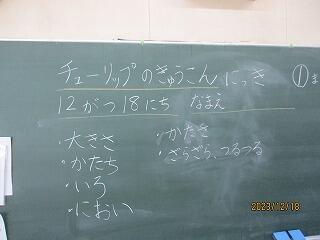 チューリップのきゅうこん にっき
① ま
12がつ18にち なまえ
・大きさ
・かたち
・いろ
・におい
・かたさ
・ざらざら、つるつる
2023/12/18